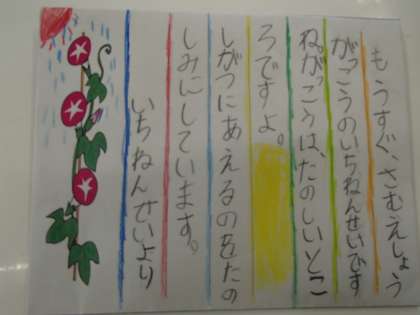 もうすぐ、さむえしょう
がっこうのいちねんせいです
ね。がっこうは、たのしいとこ
ろですよ。
しがつにあえるのをたの
しみにしています。
いちねんせいより